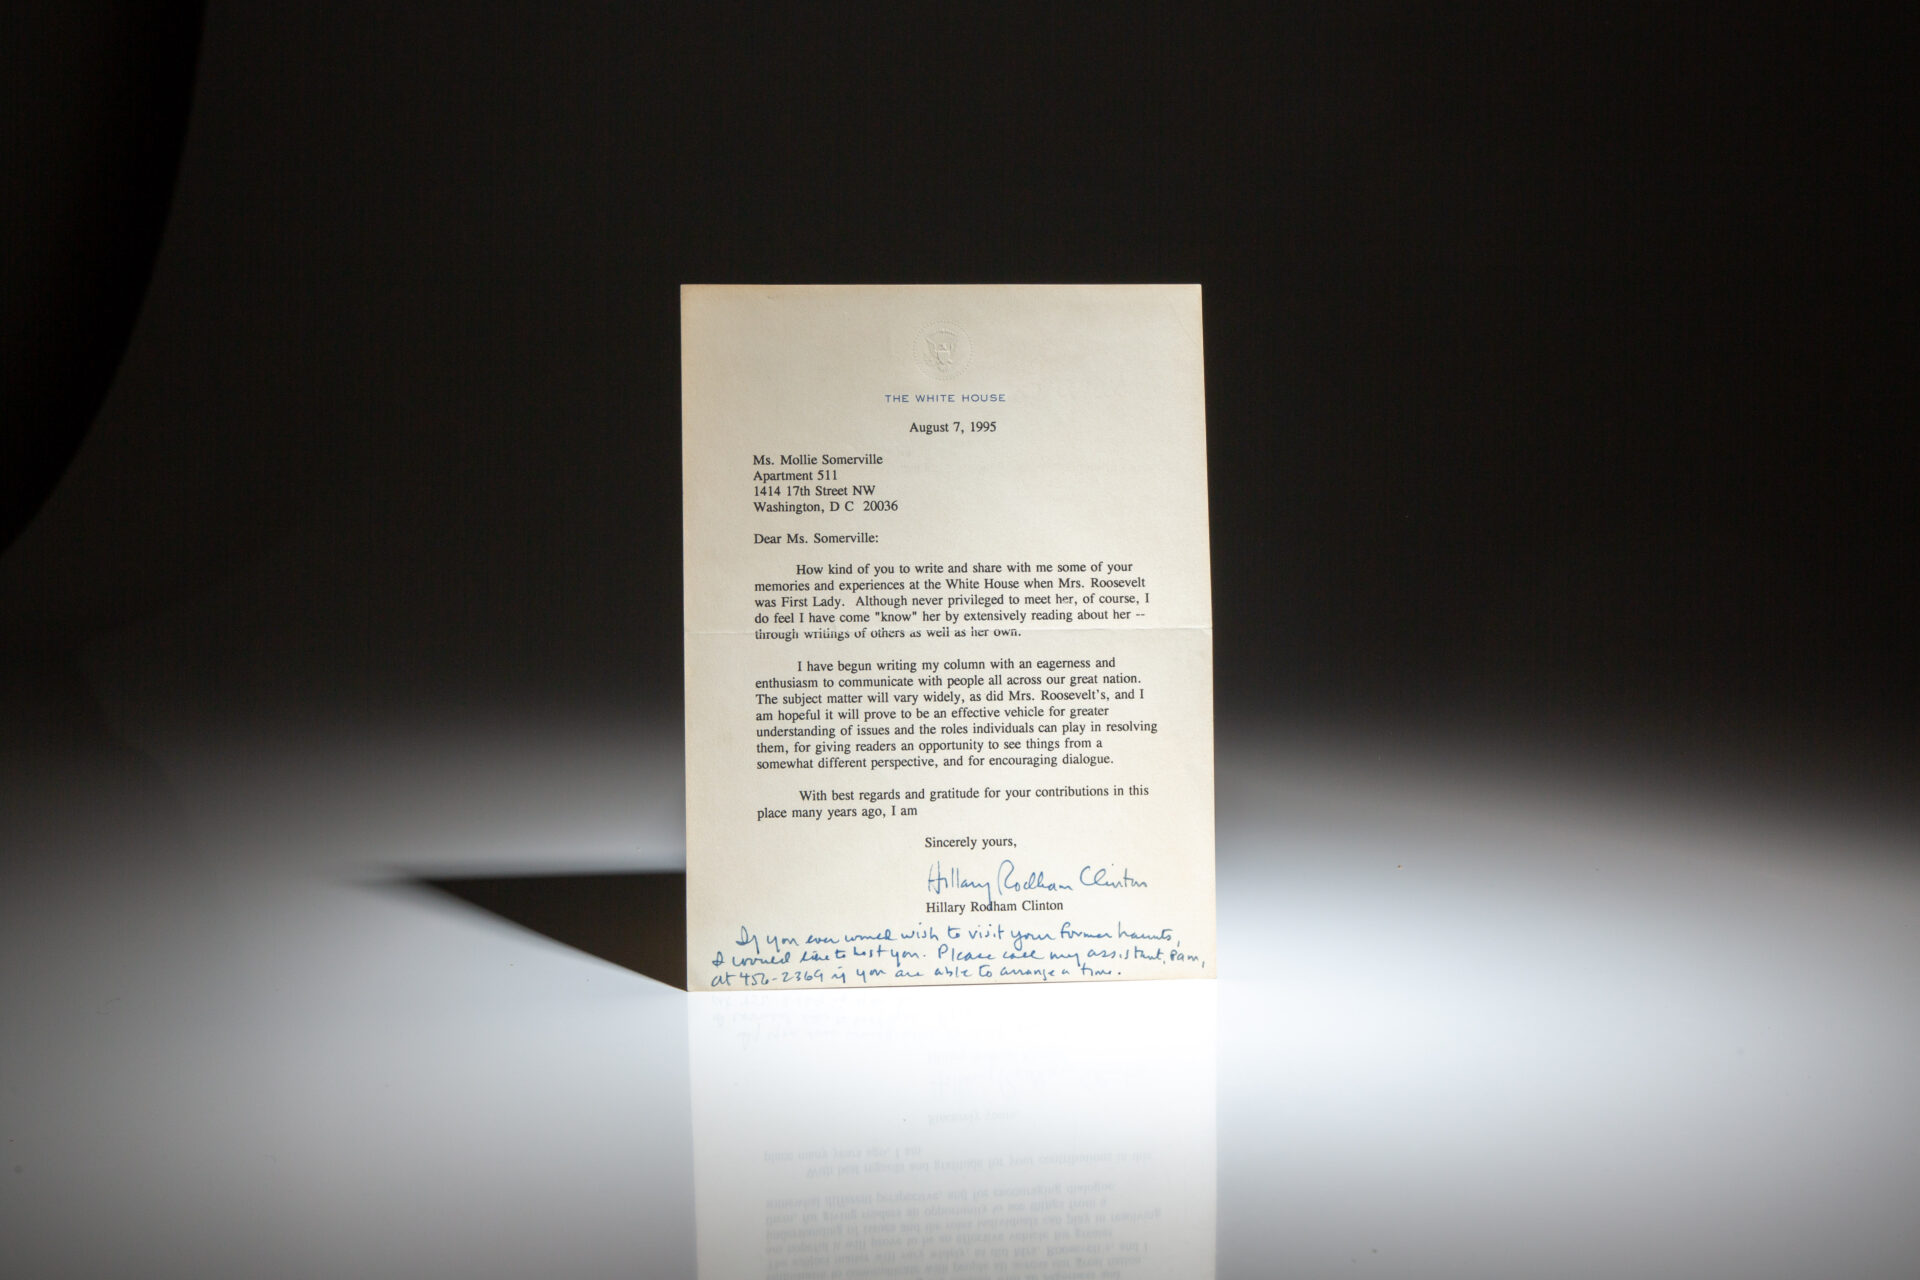 THE WHITE HOUSE
August 7, 1995
Ms. Mollie Somerville
Apartment 511
1414 17th Street NW
Washington, D C 20036
Dear Ms. Somerville:
How kind of you to write and share with me some of your
memories and experiences at the White House when Mrs. Roosevelt
was First Lady. Although never privileged to meet her, of course, I
do feel I have come "know" her by extensively reading about her --
through writings of others as well as her own.
I have begun writing my column with an eagerness and
enthusiasm to communicate with people all across our great nation.
The subject matter will vary widely, as did Mrs. Roosevelt's, and I
am hopeful it will prove to be an effective vehicle for greater
understanding of issues and the roles individuals can play in resolving
them, for giving readers an opportunity to see things from a
somewhat different perspective, and for encouraging dialogue.
With best regards and gratitude for your contributions in this
place many years ago, I am
Sincerely yours,
Hillary Rodham Clinton
Hillary Rodham Clinton
If you ever would wish to visit your former haunts,
I would like to host you. Please call my assistant, Pam,
at 456-2369 if you are able to arrange a time.